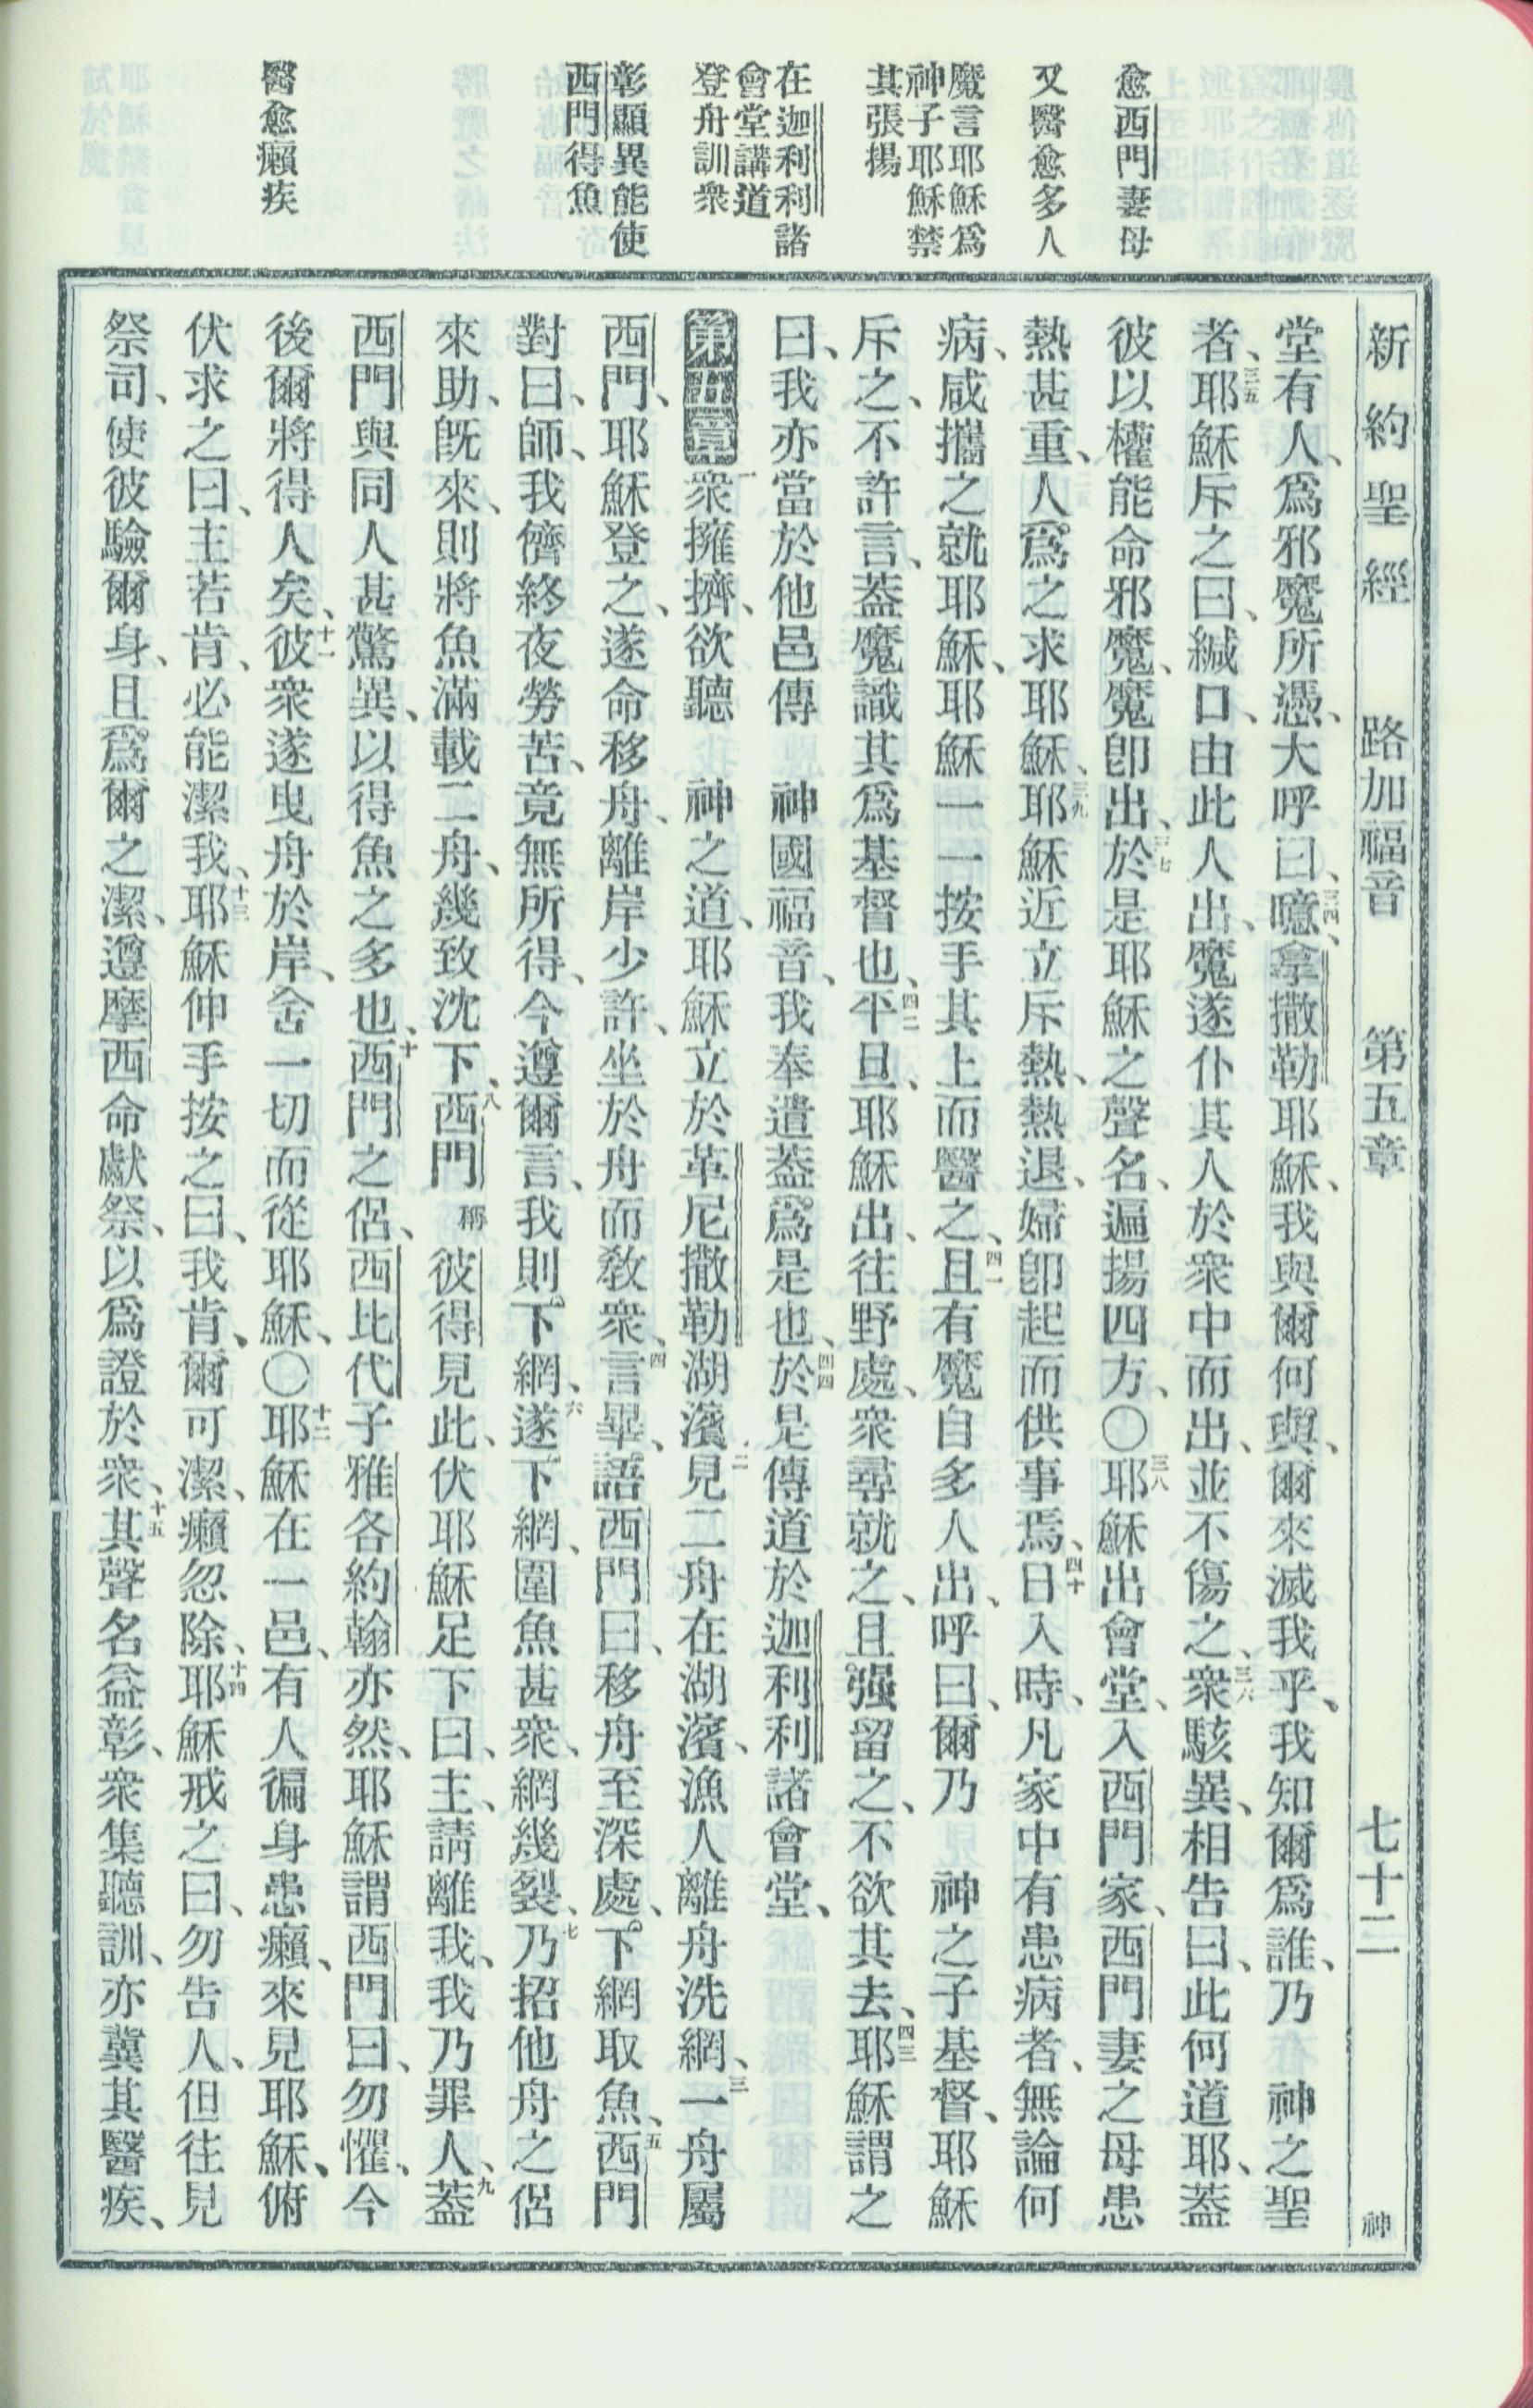 新約聖經 路加福音 第五章 七十二 神
愈西門妻母
又醫愈多人
魔言耶穌爲
神子耶穌禁
其張揚
在迦利利諸
會堂講道
登舟訓衆
彰顯異能使
西門得魚
醫愈癩疾
堂有人、爲邪魔所憑、大呼曰、三四噫、拿撒勒耶穌、我與爾何與、爾來滅我乎、我知爾爲誰、乃 神之聖
者、三五耶穌斥之曰、緘口、由此人出、魔遂仆其人於衆中而出、並不傷之、三六衆駭異、相告曰、此何道耶、蓋
彼以權能命邪魔、魔卽出、三七於是耶穌之聲名、遍揚四方、〇三八耶穌出會堂、入西門家、西門妻之母患
熱甚重、人爲之求耶穌、三九耶穌近立斥熱、熱退、婦卽起而供事焉、四十日入時、凡家中有患病者、無論何
病、咸攜之就耶穌、耶穌一一按手其上而醫之、四一且有魔自多人出、呼曰、爾乃 神之子基督、耶穌
斥之、不許言、蓋魔識其爲基督也、四二平旦、耶穌出、往野處、衆尋就之、且强留之、不欲其去、四三耶穌謂之
曰、我亦當於他邑傳 神國福音、我奉遣蓋爲是也、四四於是傳道於迦利利諸會堂、
第五章 一衆擁擠、欲聽 神之道、耶穌立於革尼撒勒湖濱、二見二舟在湖濱、漁人離舟洗網、三一舟屬
西門、耶穌登之、遂命移舟、離岸少許、坐於舟而敎衆、四言畢、語西門曰、移舟至深處、下網取魚、五西門
對曰、師、我儕終夜勞苦、竟無所得、今遵爾言、我則下網、六遂下網、圍魚甚衆、網幾裂、七乃招他舟之侶
來助、旣來、則將魚滿載二舟、幾致沈下、八西門稱彼得見此、伏耶穌足下曰、主、請離我、我乃罪人、九蓋
西門與同人甚驚異、以得魚之多也、十西門之侶、西比代子雅各約翰亦然、耶穌謂西門曰、勿懼、今
後爾將得人矣、十一彼衆遂曳舟於岸、舍一切而從耶穌、〇十二耶穌在一邑、有人徧身患癩、來見耶穌、俯
伏求之曰、主若肯、必能潔我、十三耶穌伸手按之曰、我肯、爾可潔、癩忽除、十四耶穌戒之曰、勿告人、但往見
祭司、使彼驗爾身、且爲爾之潔、遵摩西命獻祭、以爲證於衆、十五其聲名益彰、衆集聽訓、亦冀其醫疾、